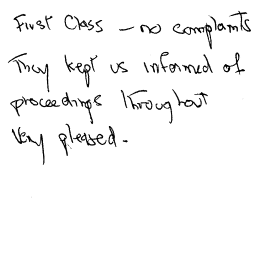 First Class - no complaints
They kept us informed of
proceedings throughout
Very pleased.